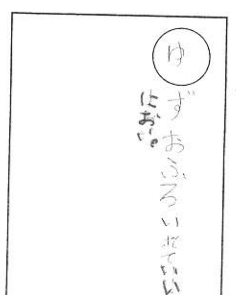 ゆ
ずおふろいれていい
におい。